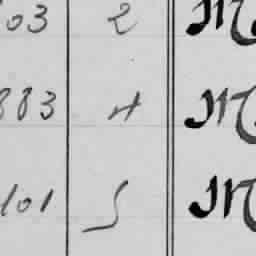 03 2 M
883 4 M
101 5 M